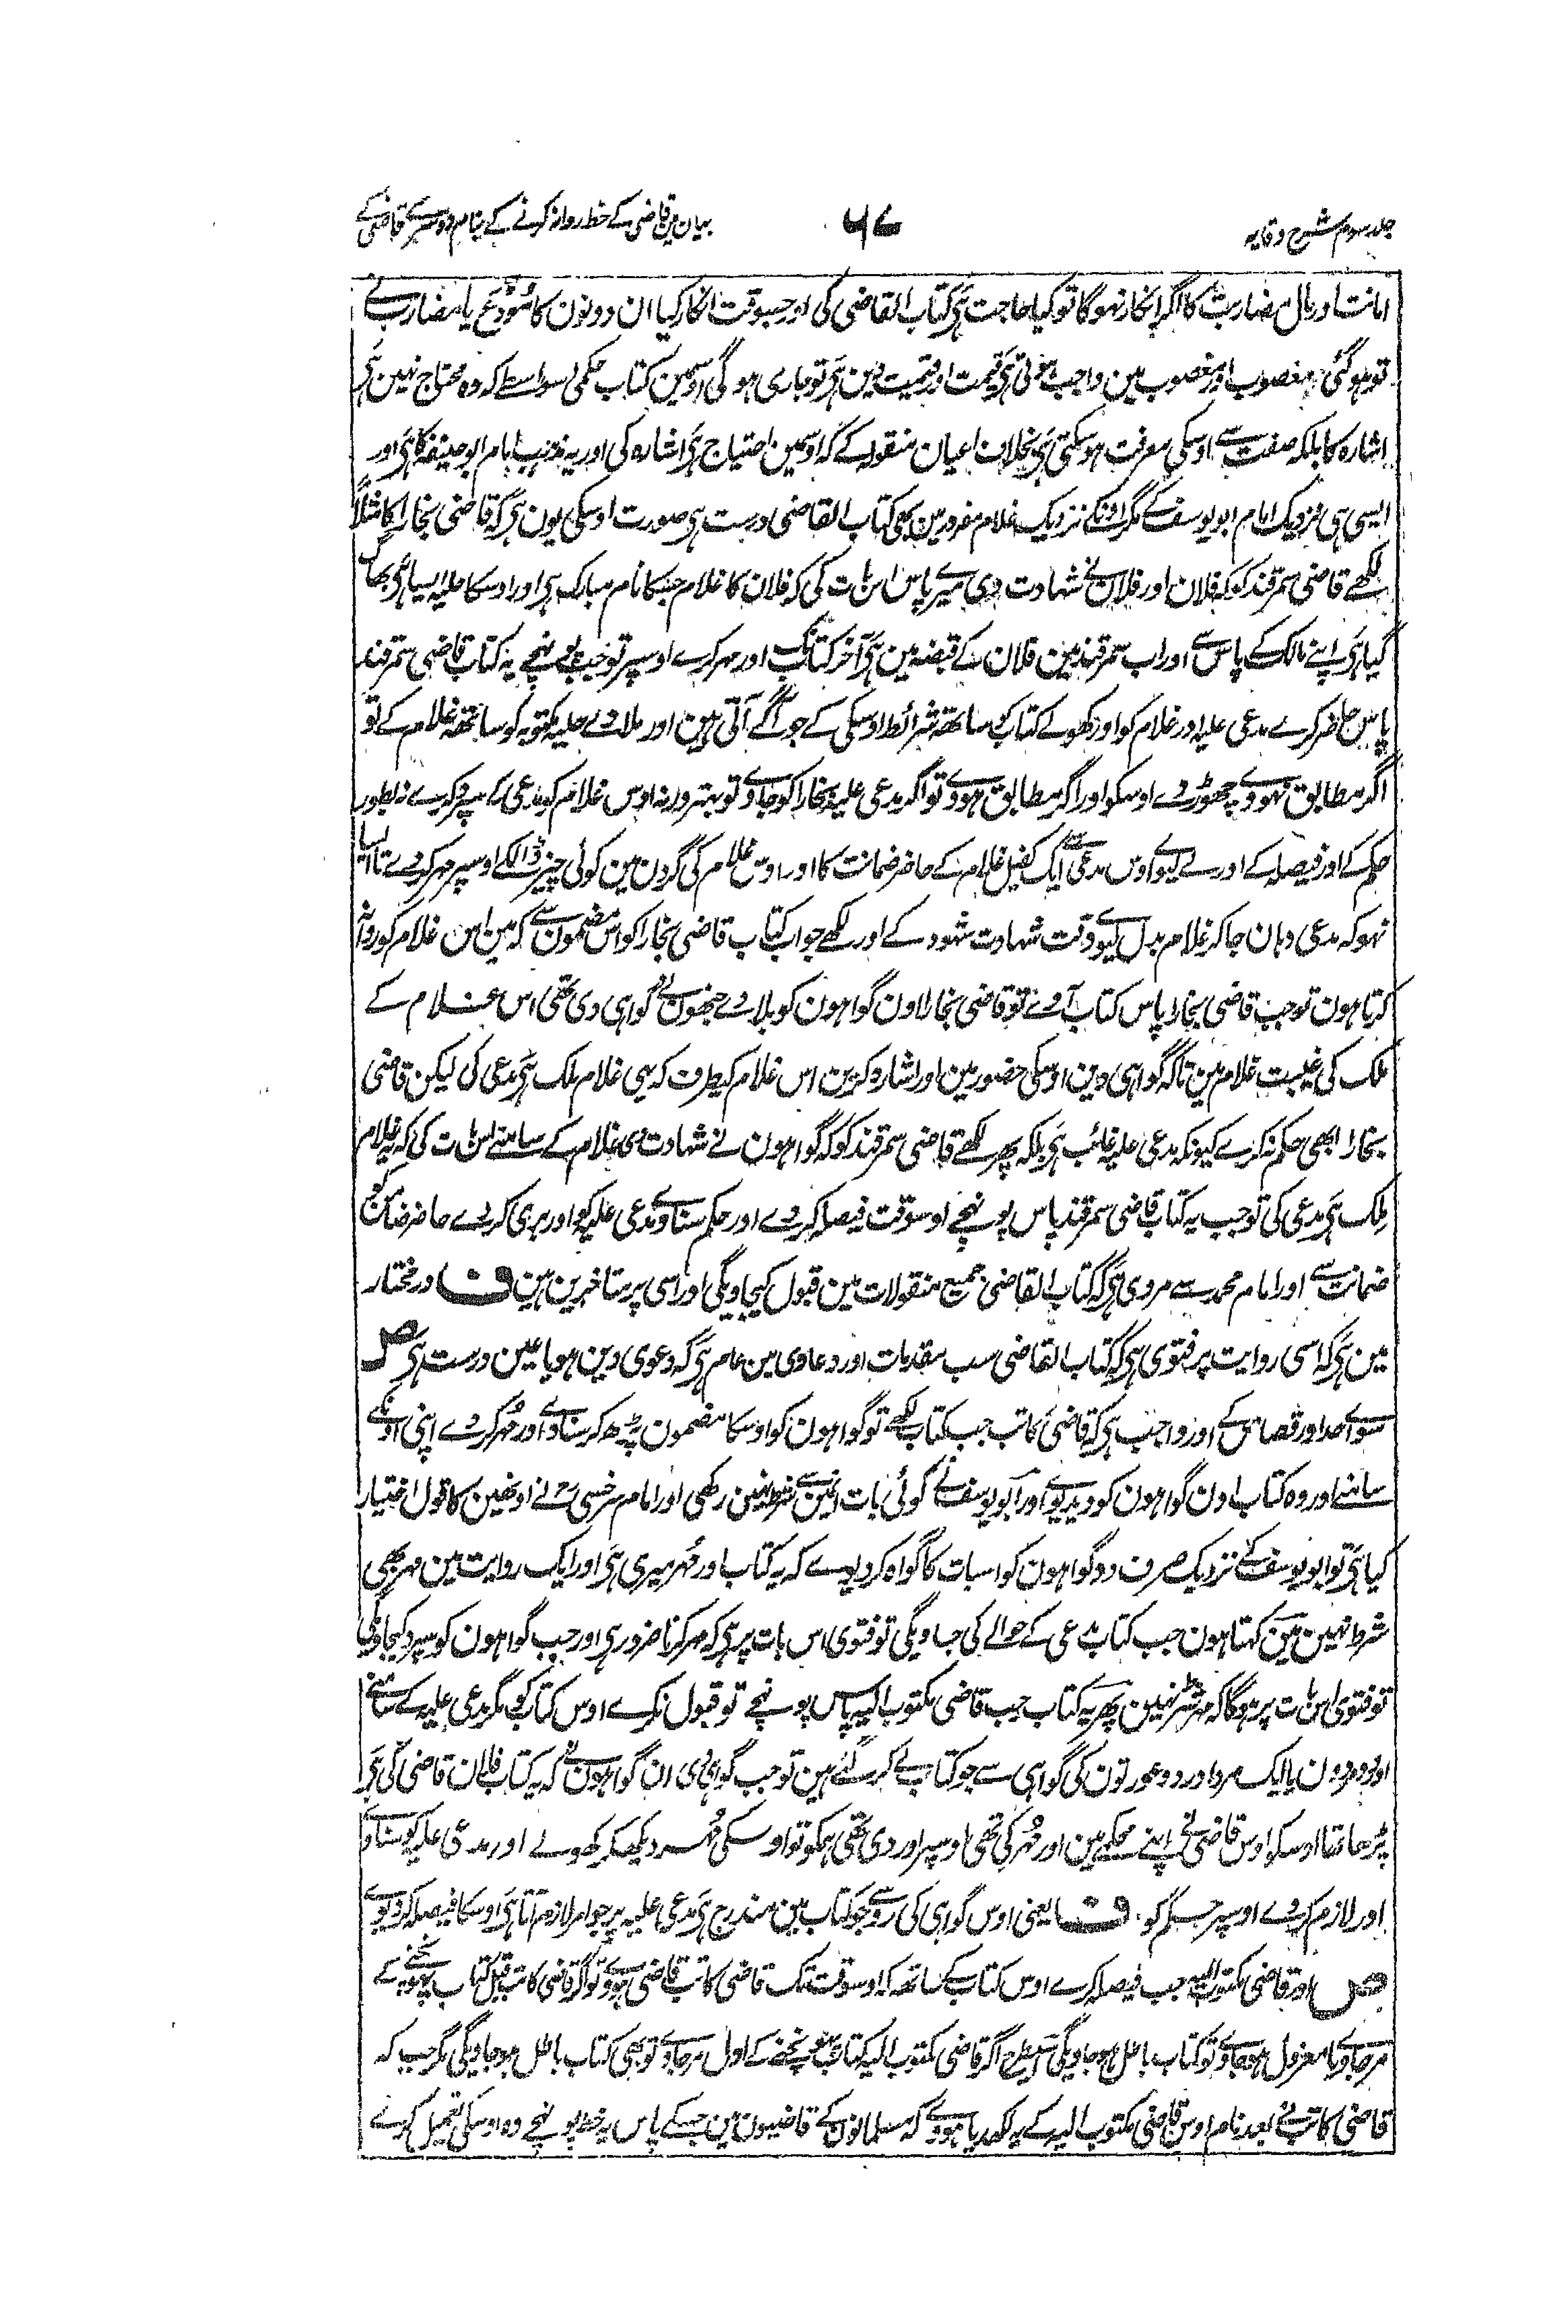 جلد سوم شرح وقایہ
۵۶۷
بیان مین قاضی کے خط روانہ کرنے کے بنام دوسرے قاضی کے
امانت اور مال مضاربت کا اگر انکار نہوگا تو کیا حاجت ہی کتاب القاضی کی اور جسوقت انکار کیا ان دونون کا مُودَع یا مضارب نے
تو ہوگئی مغصوب اور مغصوب مین واجب ہوتی ہی قیمت اور قیمت دین ہی تو جاری ہوگی اوسمین کتاب حکمی اسواسطے کہ وہ محتاج نہین ہی
اشارہ کا بلکہ صفت سے اوسکی معرفت ہوسکتی ہی بخلاف اعیان منقولہ کے کہ اوسمین احتیاج ہی اشارہ کی اور یہ مذہب امام ابو حنیفہ کا ہی اور
ایسی ہی نزدیک امام ابو یوسف کے مگر اونکے نزدیک غلام مفرور مین بھی کتاب القاضی درست ہی صورت اوسکی یون ہی کہ قاضی بخارا کا مثلاً
لکھے قاضی سمرقند کو کہ فلان اور فلان نے شہادت دی میرے پاس اس بات کی کہ فلان کا غلام جسکا نام مبارک ہی اور اوسکا حلیہ ایسا ہی بھاگ
گیا ہی اپنے مالک کے پاس سے اور اب سمرقند مین فلان کے قبضہ مین ہی آخر کتاب تک اور مہر کرے اوسپر تو جب پہونچے یہ کتاب قاضی سمرقند
پاس حاضر کرے مدعی علیہ اور غلام کو اور کھولے کتاب کو ساتھ شرائط اوسکی کے جو آگے آتی ہین اور ملاوے حلیہ مکتوبہ کو ساتھ غلام کے تو
اگر مطابق نہووے چھوڑ دے اوسکو اور اگر مطابق ہووے تو اگر مدعی علیہ بخارا کو جاوے تو بہتر ورنہ اوس غلام کو مدعی کے سپرد کرے نہ بطور
حکم کے اور فیصلہ کے اور لے لیوے اوس مدعی سے ایک کفیل غلام کے حاضر ضمانت کا اور اوس غلام کی گردن مین کوئی چیز ڈالکے اوسپر مہر کردے تا ایسا
نہو کہ مدعی وہان جاکر غلام بدل لیوے وقت شہادت شہود کے اور لکھے جواب کتاب قاضی بخارا کو اس مضمون سے کہ مین اس غلام کو روانہ
کرتا ہون تو جب قاضی بخارا پاس کتاب آوے تو قاضی بخارا اون گواہون کو بلاوے جنھون نے گواہی دی تھی اس غلام کے
ملک کی غیبت غلام مین تاکہ گواہی دین اوسکی حضور مین اور اشارہ کرین اس غلام کیطرف کہ یہی غلام ملک ہی مدعی کی لیکن قاضی
بخارا ابھی حکم نہ کرے کیونکہ مدعی علیہ غائب ہی بلکہ پھر لکھے قاضی سمرقند کو کہ گواہون نے شہادت دی غلام کے سامنے اس بات کی کہ یہ غلام
ملک ہی مدعی کی تو جب یہ کتاب قاضی سمرقند پاس پونہچے اوسوقت فیصلہ کردے اور حکم سناوے مدعی علیہ کو اور بری کردے حاضر ضامن کو
ضمانت سے اور امام محمد سے مروی ہی کہ کتاب القاضی جمیع منقولات مین قبول کیجاویگی اور اسی پر متاخرین ہین ف درمختار
مین ہی کہ اسی روایت پر فتوی ہی کہ کتاب القاضی سب مقدمات اور دعاوی مین عام ہی کہ دعوی دین ہو یا عین درست ہی ص
سوائے حد اور قصاص کے اور واجب ہی کہ قاضی کاتب جب کتاب لکھے تو گواہون کو اوسکا مضمون پڑھ کر سناوے اور مُہر کردے اپنی اونکے
سامنے اور وہ کتاب اون گواہون کو دیدیوے اور ابو یوسف نے کوئی بات انمین سے شرط نہین رکھی اور امام سرخسی نے اونھین کا قول اختیار
کیا ہی تو ابو یوسف کے نزدیک صرف دو گواہون کو اسبات کا گواہ کر دیوے کہ یہ کتاب اور مُہر میری ہی اور ایک روایت مین مہر بھی
شرط نہین مین کہتا ہون جب کتاب مدعی کے حوالے کی جاویگی تو فتوی اس بات پر ہی کہ مہر کرنا ضرور ہی اور جب گواہون کو سپرد کیجاویگی
تو فتوی اس بات پر ہوگا کہ مہر شرط نہین پھر یہ کتاب جب قاضی مکتوب الیہ پاس پونہچے تو قبول نکرے اوس کتاب کو مگر مدعی علیہ کے سامنے
اور دو مردون یا ایک مرد اور دو عورتون کی گواہی سے جو کتاب لے کر گئے ہین تو جب گواہی دی ان گواہون نے کہ یہ کتاب فلان قاضی کی ہی
پڑھا تھا اوسکو اوس قاضی نے اپنے محکمے مین اور مُہر کی تھی اوسپر اور دی تھی ہمکو تو اوسکی مُہر دیکھ کر کھولے اور مدعی علیہ کو سناوے
اور لازم کردے اوسپر حکم کو ف یعنی اوس گواہی کی رو سے جو کتاب مین مندرج ہی مدعی علیہ پر جو امر لازم آتا ہی اوسکا فیصلہ کردیوے
ص اور قاضی مکتوب الیہ جب فیصلہ کرے اوس کتاب کے ساتھ کہ اوسوقت تک قاضی کاتب قاضی ہووے تو اگر قاضی کاتب قبل کتاب پہونچنے کے
مرجاوے یا معزول ہوجاوے تو کتاب باطل ہوجاویگی اسیطرح اگر قاضی مکتوب الیہ کتاب پہونچنے کے اول مرجاوے تو بھی کتاب باطل ہوجاویگی مگر جب کہ
قاضی کاتب نے بعد نام اوس قاضی مکتوب الیہ کے یہ لکھدیا ہووے کہ مسلمانون کے قاضیون مین جسکے پاس یہ خط پونہچے وہ اوسکی تعمیل کرے